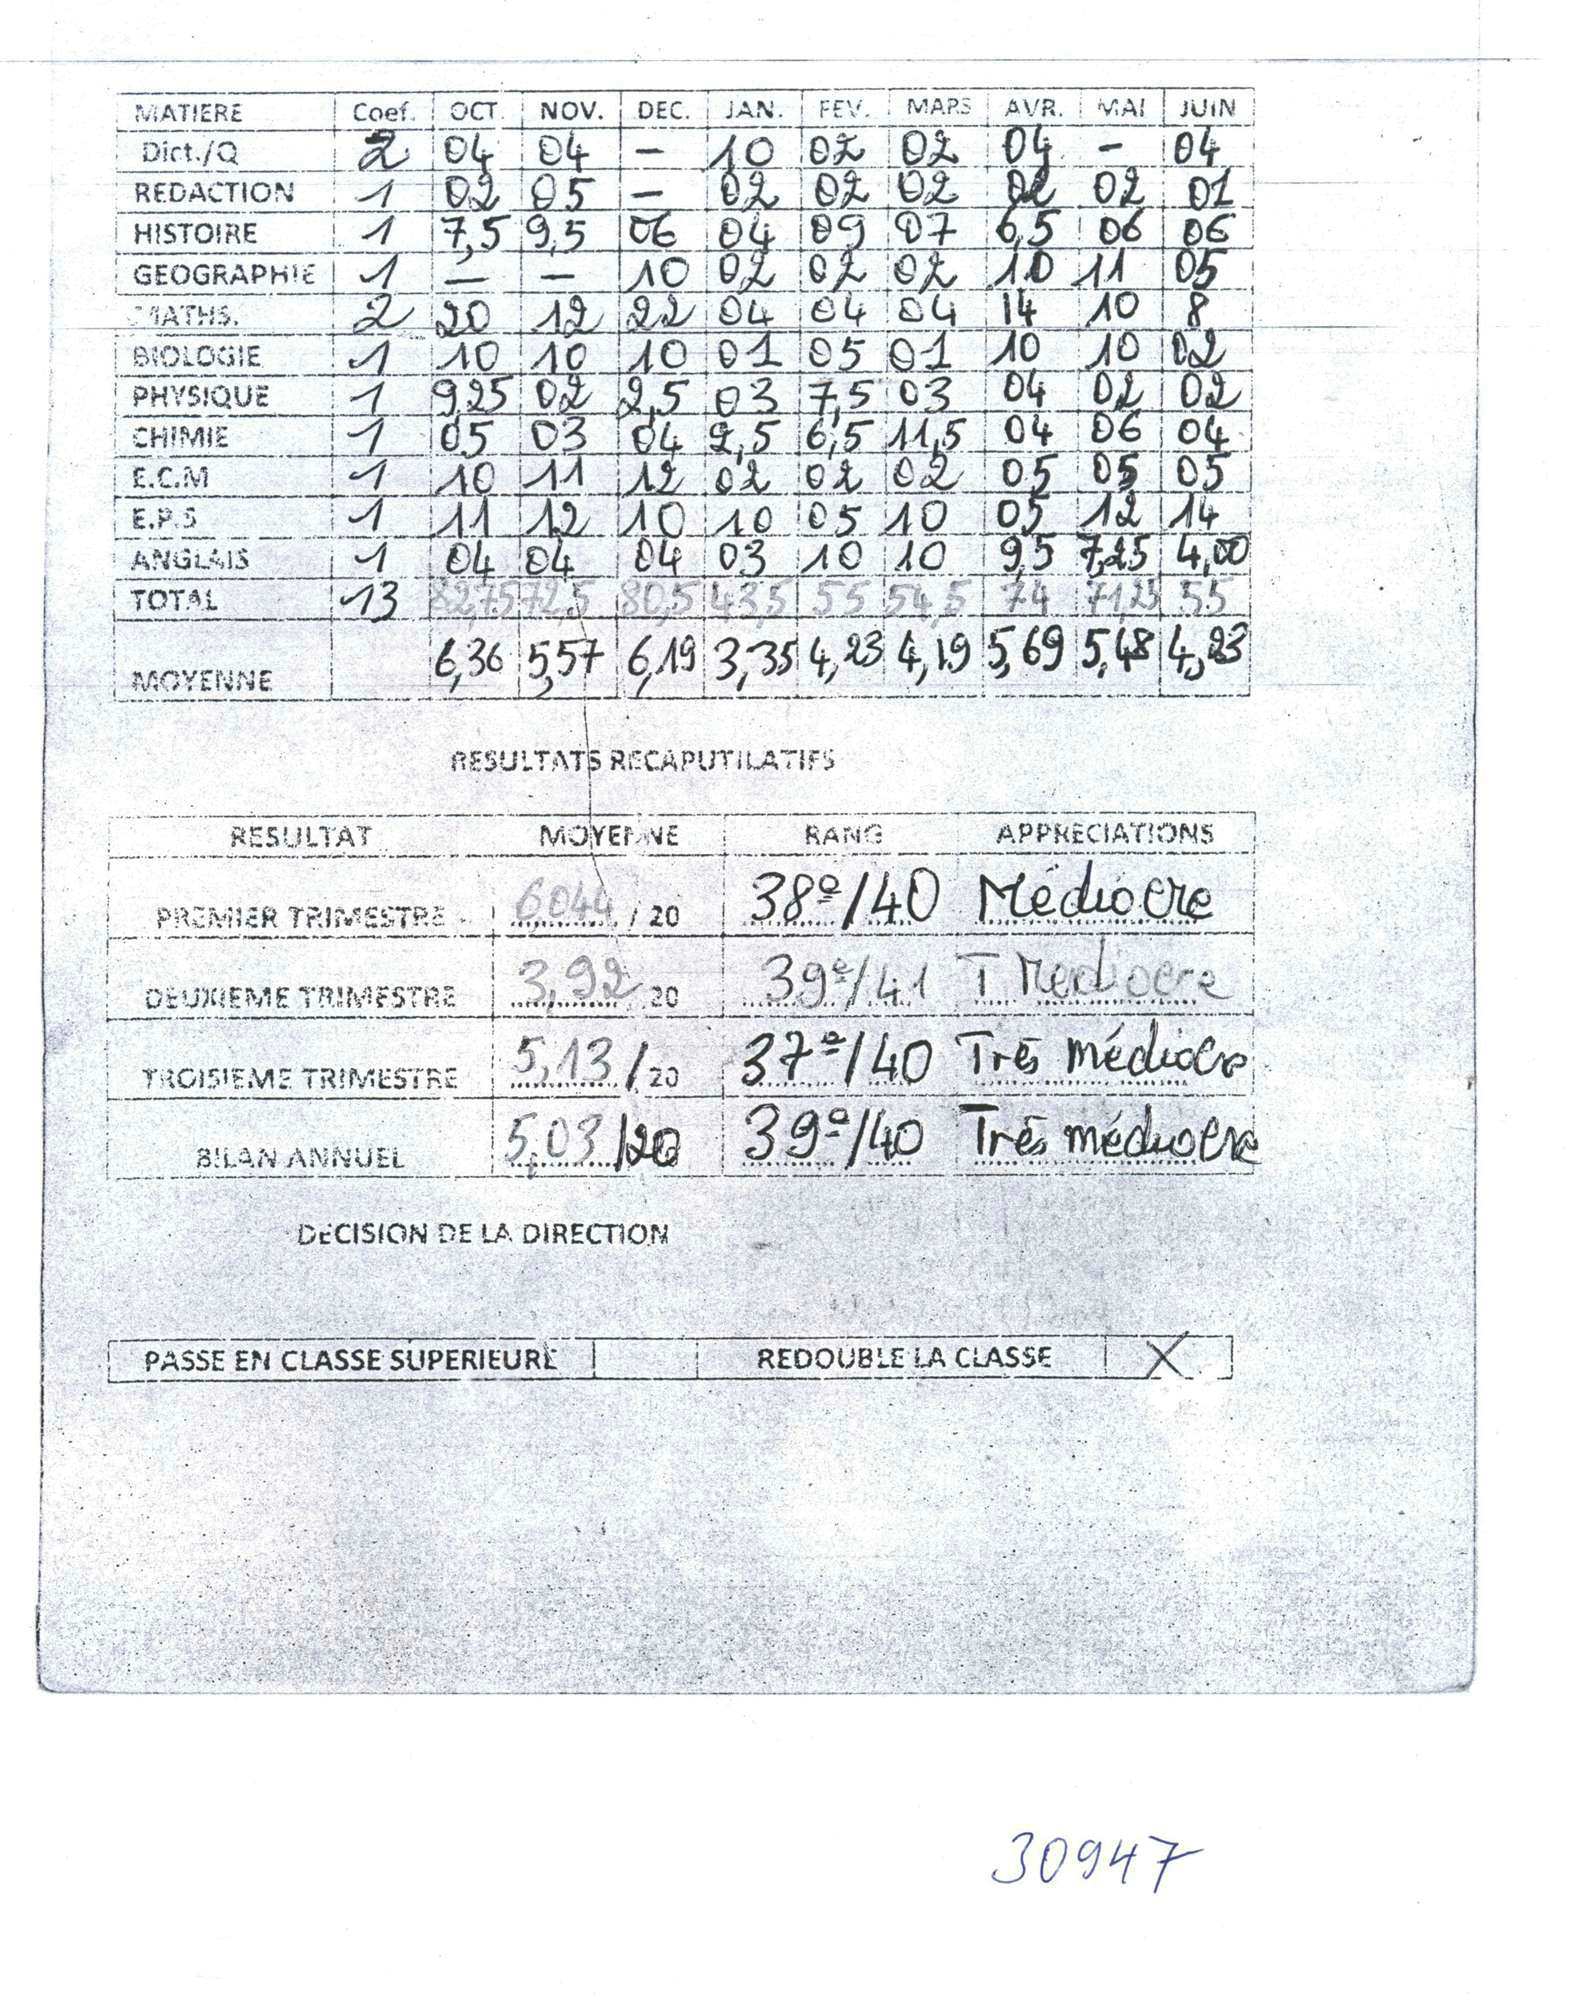 MATIERE Coef. OCT. NOV. DEC. JAN. FEV. MARS AVR. MAI JUIN
Dict./Q 2 04 04 — 10 02 02 04 — 04
REDACTION 1 02 05 — 02 02 02 02 02 01
HISTOIRE 1 7,5 9,5 06 04 09 07 6,5 06 06
GEOGRAPHIE 1 — — 10 02 02 02 10 11 05
MATHS. 2 20 12 22 04 04 04 14 10 8
BIOLOGIE 1 10 10 10 01 05 01 10 10 02
PHYSIQUE 1 9,25 02 2,5 03 7,5 03 04 02 02
CHIMIE 1 05 03 04 2,5 6,5 11,5 04 06 04
E.C.M 1 10 11 12 02 02 02 05 05 05
E.P.S 1 11 12 10 10 05 10 05 12 14
ANGLAIS 1 04 04 04 03 10 10 9,5 7,25 4,00
TOTAL 13 82,75 72,5 80,5 43,5 55 54,5 74 71,25 55
MOYENNE 6,36 5,57 6,19 3,35 4,23 4,19 5,69 5,48 4,23
RESULTATS RECAPUTILATIFS
RESULTAT MOYENNE RANG APPRECIATIONS
PREMIER TRIMESTRE 6044 / 20 38e/40 Médiocre
DEUXIEME TRIMESTRE 3,92 20 39e/41 T Mediocre
TROISIEME TRIMESTRE 5,13 / 20 37e/40 Très médiocre
BILAN ANNUEL 5,03 /20 39e/40 Très médiocre
DECISION DE LA DIRECTION
PASSE EN CLASSE SUPERIEURE REDOUBLE LA CLASSE X
30947